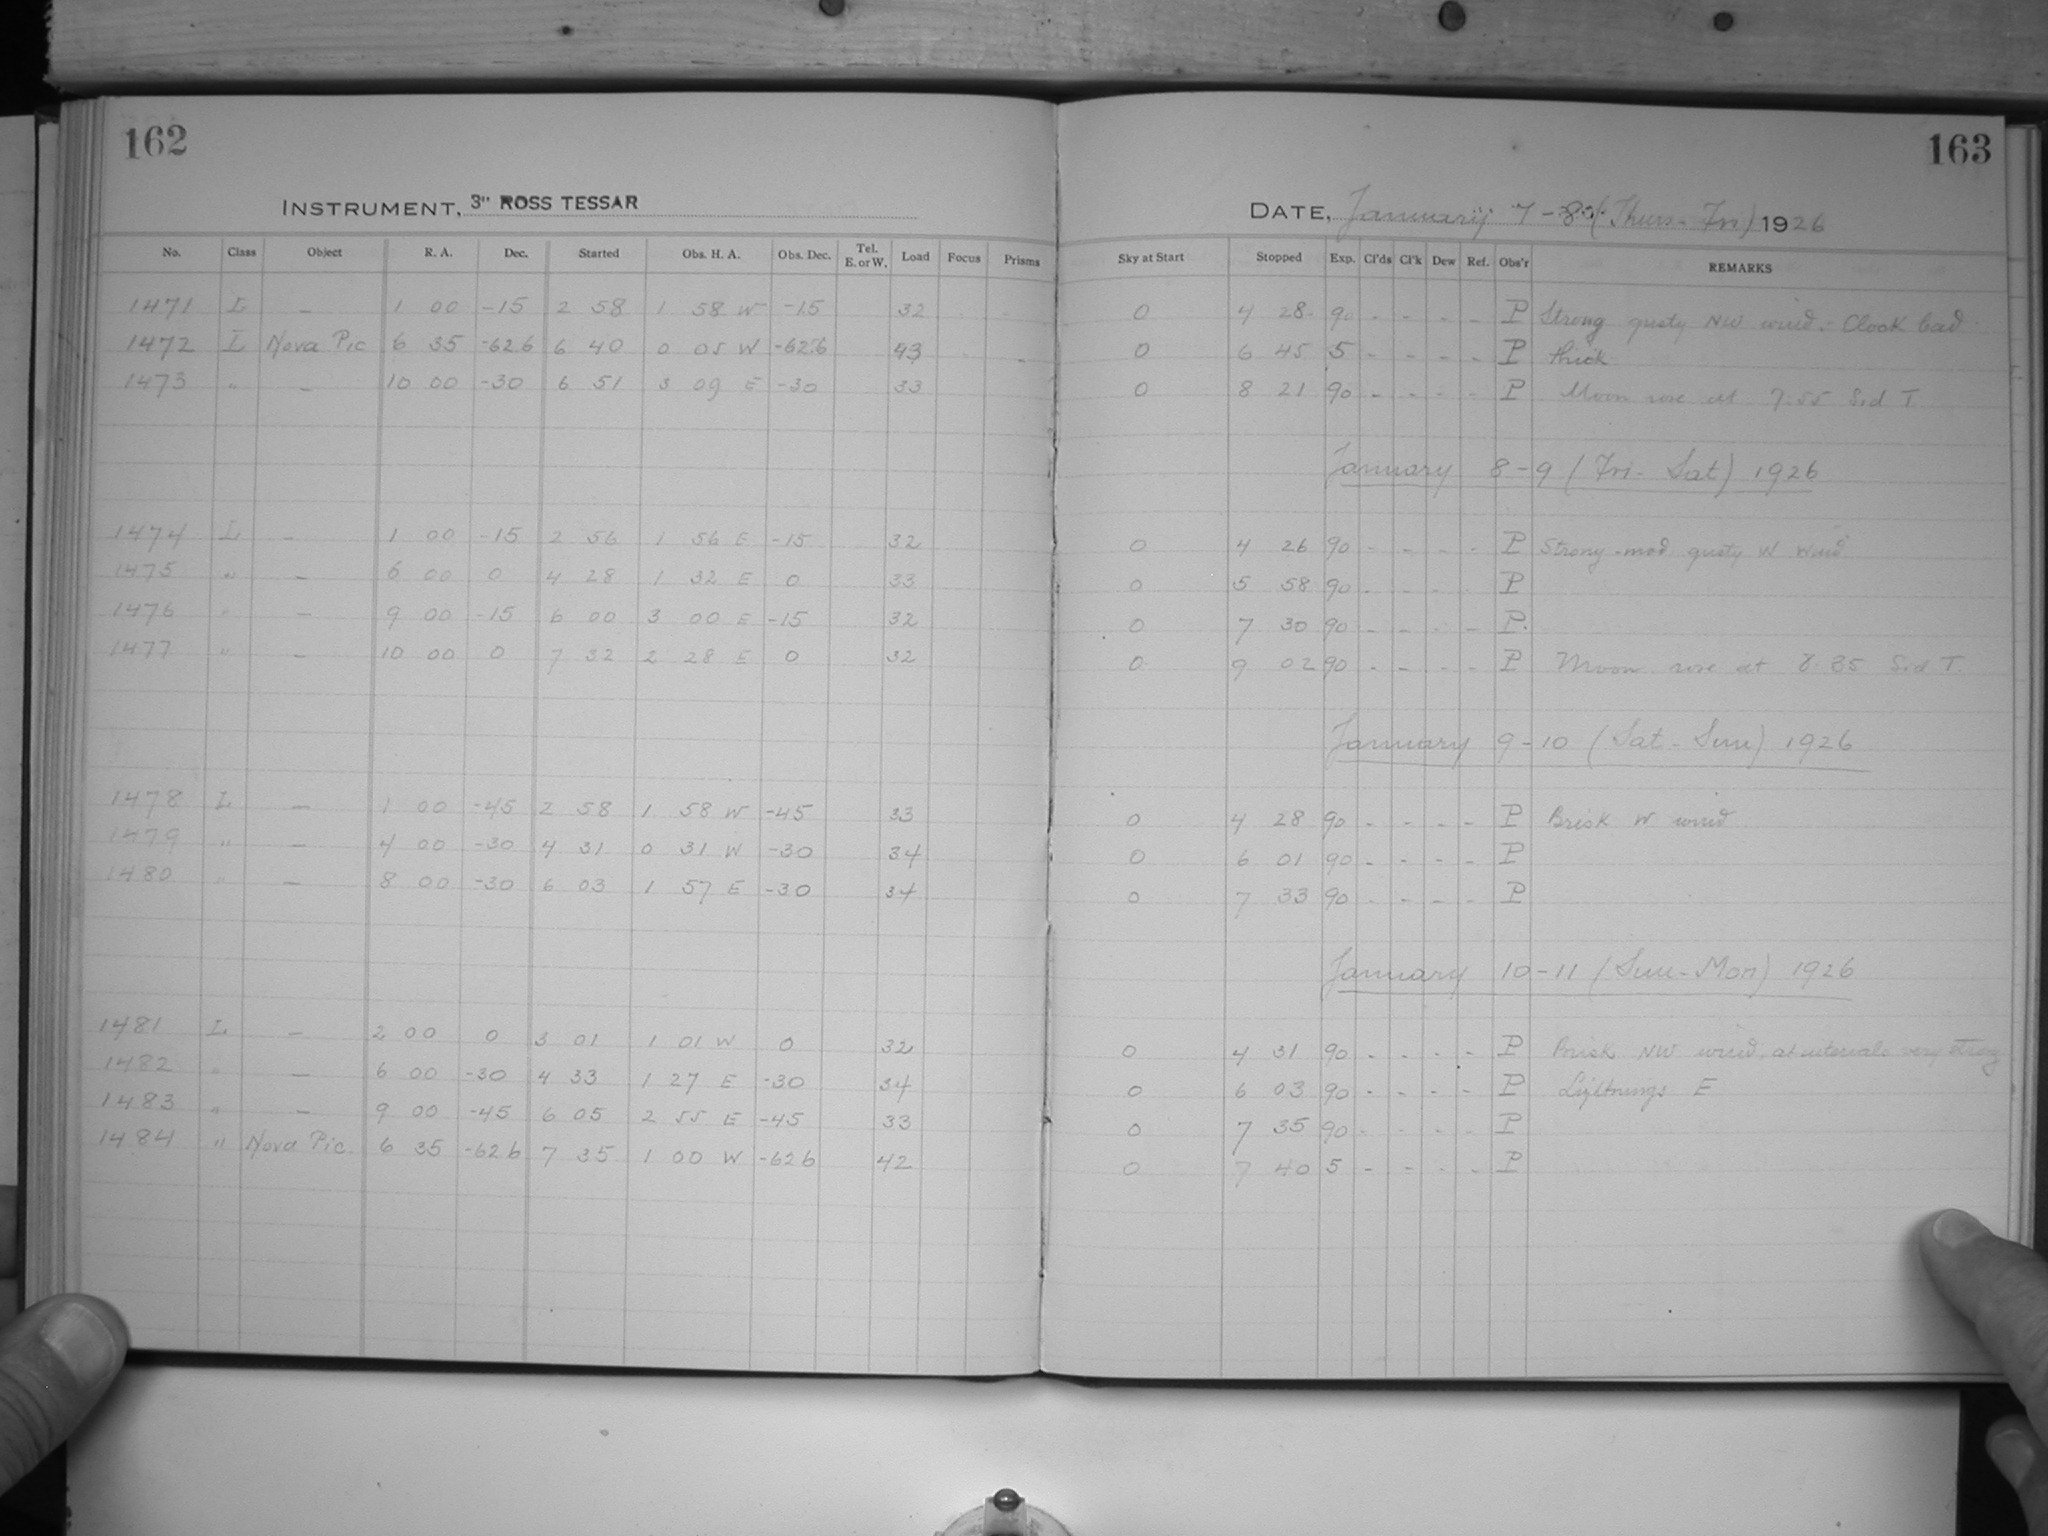 162
163
INSTRUMENT, 3" ROSS TESSAR
DATE, January 7-8 (Thurs-Fri) 1926
No. Class Object R. A. Dec. Started Obs. H. A. Obs. Dec. Tel. E. or W. Load Focus Prisms Sky at Start Stopped Exp. Cl'ds Cl'k Dew Ref. Obs'r REMARKS
1471 L — 1 00 -15 2 58 1 58 W -15 32 0 4 28 90 - - - - P Strong gusty NW wind. - Clock bad
1472 L Nova Pic 6 35 -62.6 6 40 0 05 W -62.6 43 0 6 45 5 - - - - P thick
1473 " — 10 00 -30 6 51 3 09 E -30 33 0 8 21 90 - - - - P Moon rose at 7.55 Sid T
January 8-9 (Fri-Sat) 1926
1474 L — 1 00 -15 2 56 1 56 E -15 32 0 4 26 90 - - - - P Strong-mod gusty W wind
1475 " — 6 00 0 4 28 1 32 E 0 33 0 5 58 90 - - - - P
1476 " — 9 00 -15 6 00 3 00 E -15 32 0 7 30 90 - - - - P.
1477 " — 10 00 0 7 32 2 28 E 0 32 0 9 02 90 - - - - P Moon rose at 8.35 Sid T.
January 9-10 (Sat-Sun) 1926
1478 L — 1 00 -45 2 58 1 58 W -45 33 0 4 28 90 - - - - P Brisk W wind
1479 " — 4 00 -30 4 31 0 31 W -30 34 0 6 01 90 - - - - P
1480 " — 8 00 -30 6 03 1 57 E -30 34 0 7 33 90 - - - - P
January 10-11 (Sun-Mon) 1926
1481 L. — 2 00 0 3 01 1 01 W 0 32 0 4 31 90 - - - - P Brisk NW wind, at intervals very strong
1482 " — 6 00 -30 4 33 1 27 E -30 34 0 6 03 90 - - - - P Lightnings E
1483 " — 9 00 -45 6 05 2 55 E -45 33 0 7 35 90 - - - - P
1484 " Nova Pic. 6 35 -62.6 7 35 1 00 W -62.6 42 0 7 40 5 - - - - P